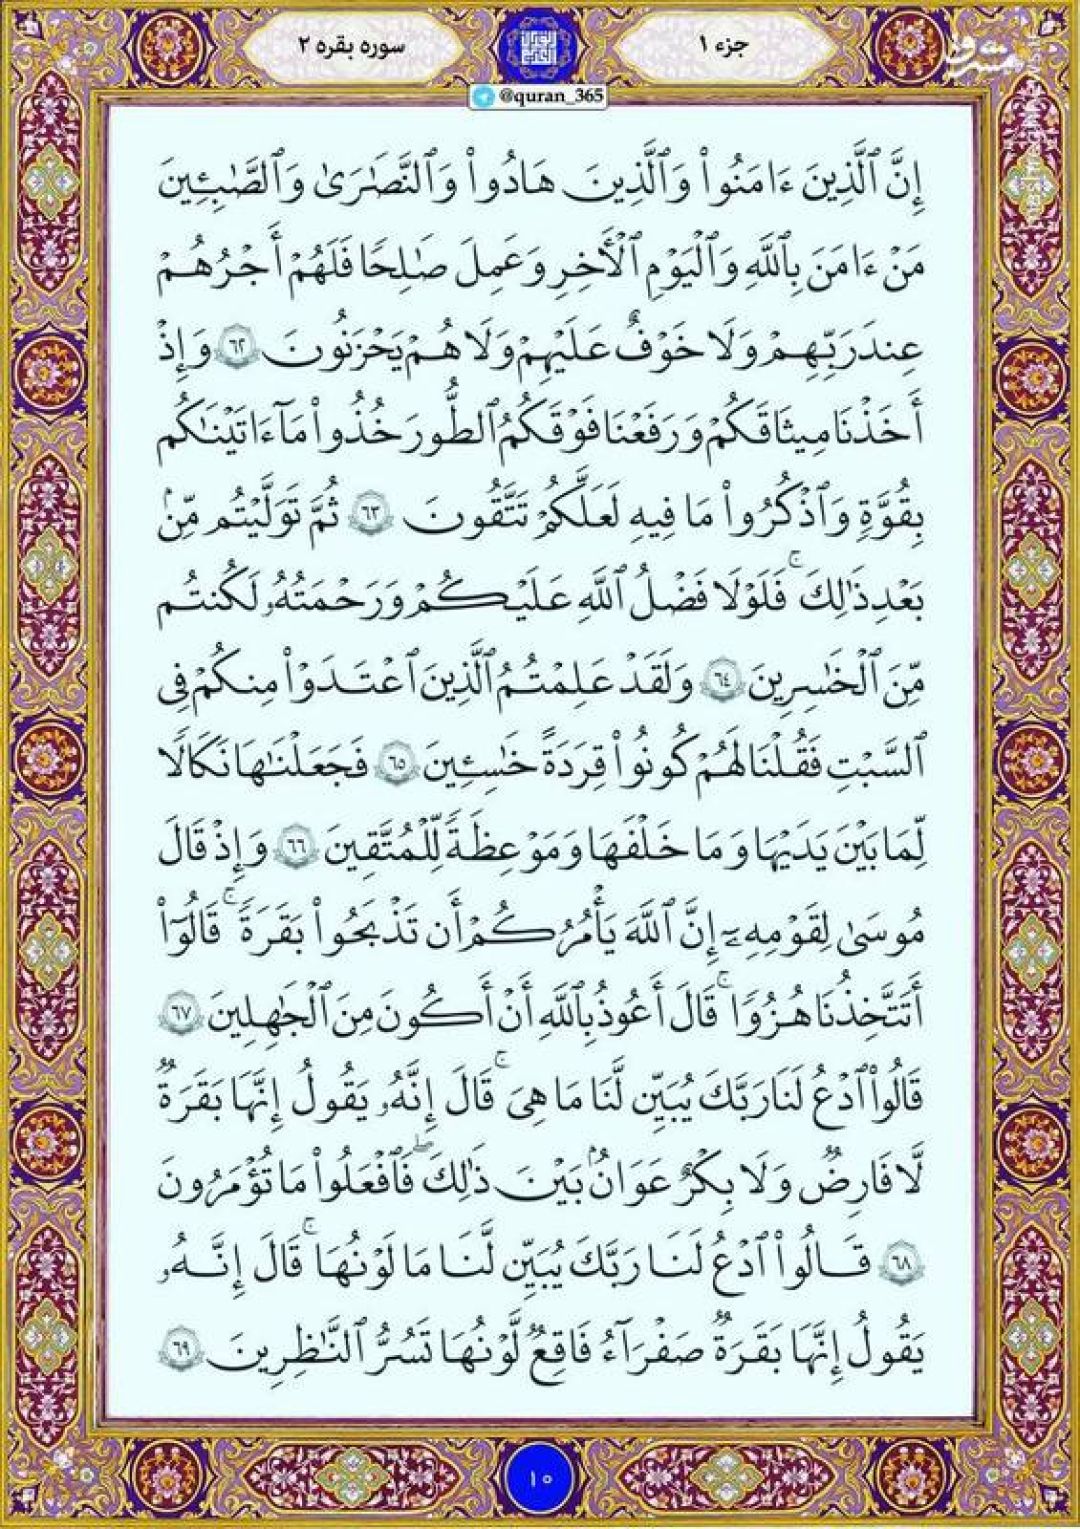 جزء ۱
سوره بقره ۲
@quran_365
إِنَّ ٱلَّذِينَ ءَامَنُوا۟ وَٱلَّذِينَ هَادُوا۟ وَٱلنَّصَٰرَىٰ وَٱلصَّٰبِـِٔينَ
مَنْ ءَامَنَ بِٱللَّهِ وَٱلْيَوْمِ ٱلْأَخِرِ وَعَمِلَ صَٰلِحًا فَلَهُمْ أَجْرُهُمْ
عِندَ رَبِّهِمْ وَلَا خَوْفٌ عَلَيْهِمْ وَلَا هُمْ يَحْزَنُونَ ٦٢ وَإِذْ
أَخَذْنَا مِيثَاقَكُمْ وَرَفَعْنَا فَوْقَكُمُ ٱلطُّورَ خُذُوا۟ مَآ ءَاتَيْنَٰكُم
بِقُوَّةٍ وَٱذْكُرُوا۟ مَا فِيهِ لَعَلَّكُمْ تَتَّقُونَ ٦٣ ثُمَّ تَوَلَّيْتُم مِّنۢ
بَعْدِ ذَٰلِكَ ۖ فَلَوْلَا فَضْلُ ٱللَّهِ عَلَيْكُمْ وَرَحْمَتُهُۥ لَكُنتُم
مِّنَ ٱلْخَٰسِرِينَ ٦٤ وَلَقَدْ عَلِمْتُمُ ٱلَّذِينَ ٱعْتَدَوْا۟ مِنكُمْ فِى
ٱلسَّبْتِ فَقُلْنَا لَهُمْ كُونُوا۟ قِرَدَةً خَٰسِـِٔينَ ٦٥ فَجَعَلْنَٰهَا نَكَالًا
لِّمَا بَيْنَ يَدَيْهَا وَمَا خَلْفَهَا وَمَوْعِظَةً لِّلْمُتَّقِينَ ٦٦ وَإِذْ قَالَ
مُوسَىٰ لِقَوْمِهِۦٓ إِنَّ ٱللَّهَ يَأْمُرُكُمْ أَن تَذْبَحُوا۟ بَقَرَةً ۖ قَالُوٓا۟
أَتَتَّخِذُنَا هُزُوًا ۖ قَالَ أَعُوذُ بِٱللَّهِ أَنْ أَكُونَ مِنَ ٱلْجَٰهِلِينَ ٦٧
قَالُوا۟ ٱدْعُ لَنَا رَبَّكَ يُبَيِّن لَّنَا مَا هِىَ ۚ قَالَ إِنَّهُۥ يَقُولُ إِنَّهَا بَقَرَةٌ
لَّا فَارِضٌ وَلَا بِكْرٌ عَوَانٌۢ بَيْنَ ذَٰلِكَ ۖ فَٱفْعَلُوا۟ مَا تُؤْمَرُونَ
٦٨ قَالُوا۟ ٱدْعُ لَنَا رَبَّكَ يُبَيِّن لَّنَا مَا لَوْنُهَا ۚ قَالَ إِنَّهُۥ
يَقُولُ إِنَّهَا بَقَرَةٌ صَفْرَآءُ فَاقِعٌ لَّوْنُهَا تَسُرُّ ٱلنَّٰظِرِينَ ٦٩
١٠